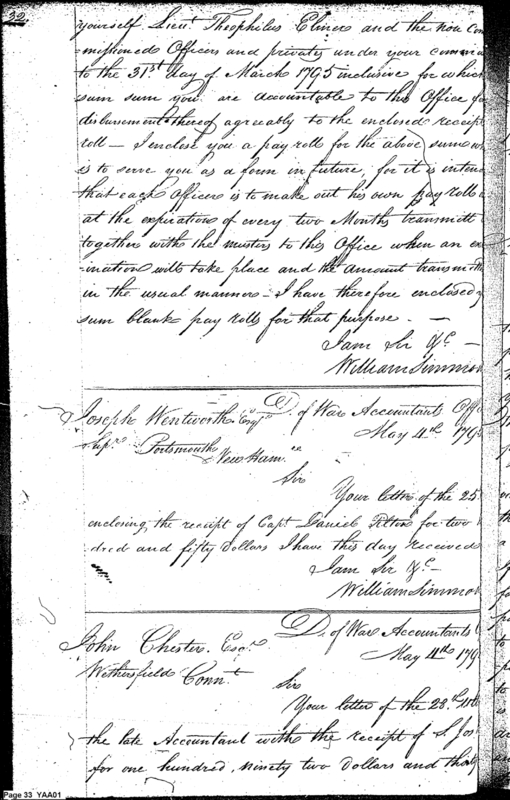 32
yourself Lieut. Theophilus Elmer and the non Com
missioned Officers and privates under your comma
to the 31st day of March 1795 inclusive for which
sum sum you are accountable to this Office for
disbursement thereof agreeably to the enclosed receipt
roll – I enclose you a pay roll for the above sum wh
is to serve you as a form in future, for it is inten
that each Officer is to make out his own pay roll a
at the expiration of every two Months transmitt
together with the musters to this Office when an ex
ination will take place and the amount transmitt
in the usual manner – I have therefore enclosed y
sum blank pay rolls for that purpose. –
I am Sir &c –
William Simmon
Joseph Wentworth Esqr. D. of War Accountant Offi
May 4th 179
Supr. Portsmouth
New Ham.
Sir
Your letter of the 25
enclosing the receipt of Capt. Daniel for two
dred and fifty dollars I have this day received
I am Sir &c –
William Simmon
D. of War Accountants
John Chester Esqr.
May 4th 179
Wethersfield Connt.
Sir
Your letter of the 28th
the late Accountant with the receipt of S. Jos
for one hundred, ninety two dollars and thirty
Page 33 YAA01